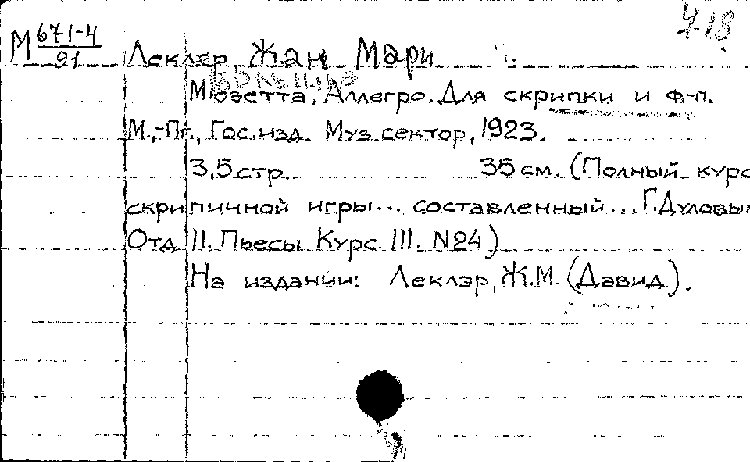 М 671-4/21 Леклэр Жан Мари
Мюзетта, Аллегро. Для скрипки и ф-п.
М.,-Пг., Гос.изд. Муз.сектор, 1923.
3,5 стр. 35 см. (Полный курс
скрипичной игры... составленный... Г.Дуловым
Отд II. Пьесы Курс III. N24)
На издании: Леклэр, Ж.М. (Давид).